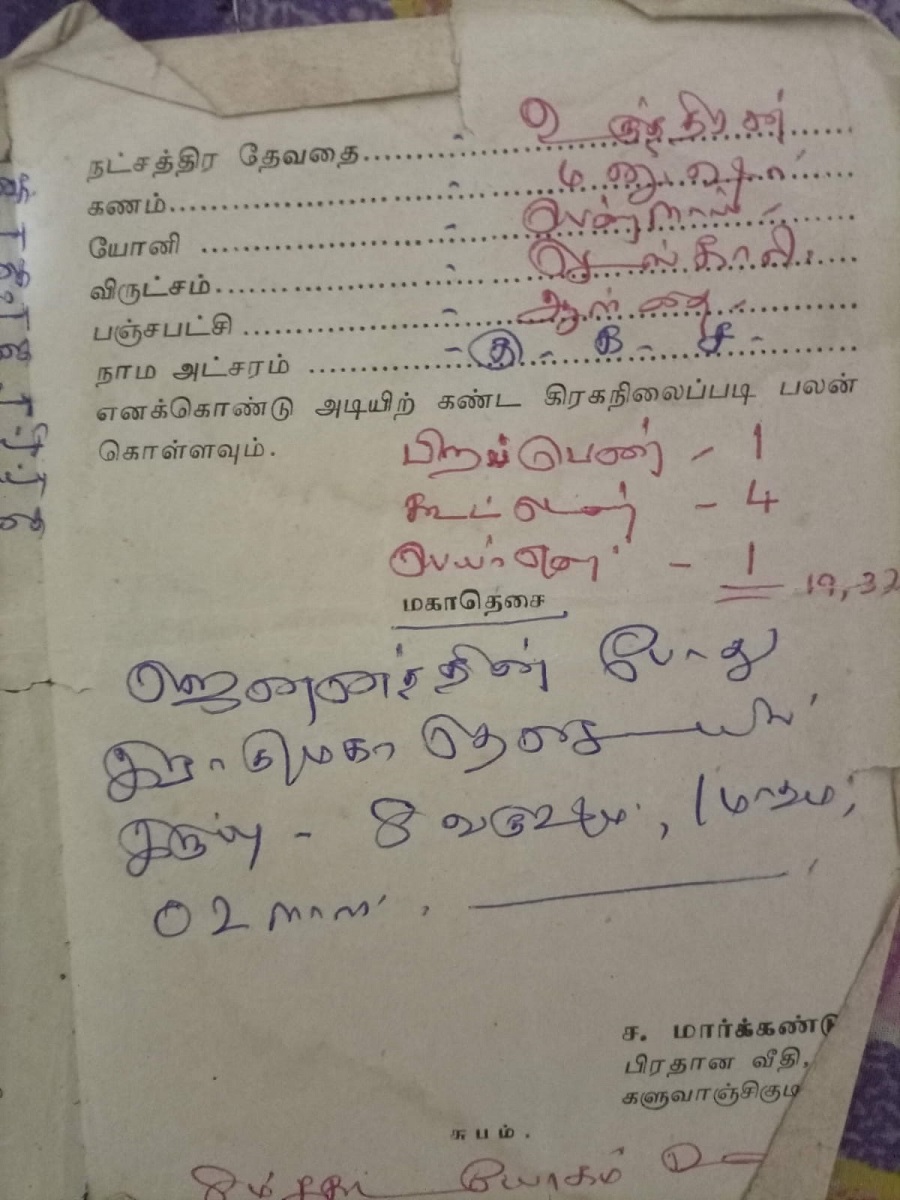 நட்சத்திர தேவதை........ உருத்திரன்
கணம்........ மனுஷ
யோனி ........ பெண்நாய்
விருட்சம்........ செங்காலி
பஞ்சபட்சி ........ ஆந்தை
நாம அட்சரம் ........
எனக்கொண்டு அடியிற் கண்ட கிரகநிலைப்படி பலன்
கொள்ளவும்.
பிறப்பெண் - 1
கூட்டெண் - 4
பெயரெண் - 1
19, 37
மகாதெசை
ஜெனனத்தின் போது
இராகுமகா தெசையில்
இருப்பு - 8 வருஷம், 1 மாதம்,
02 நாள்.
ச. மார்க்கண்டு
பிரதான வீதி,
களுவாஞ்சிகுடி
சுபம்.
யோகம்